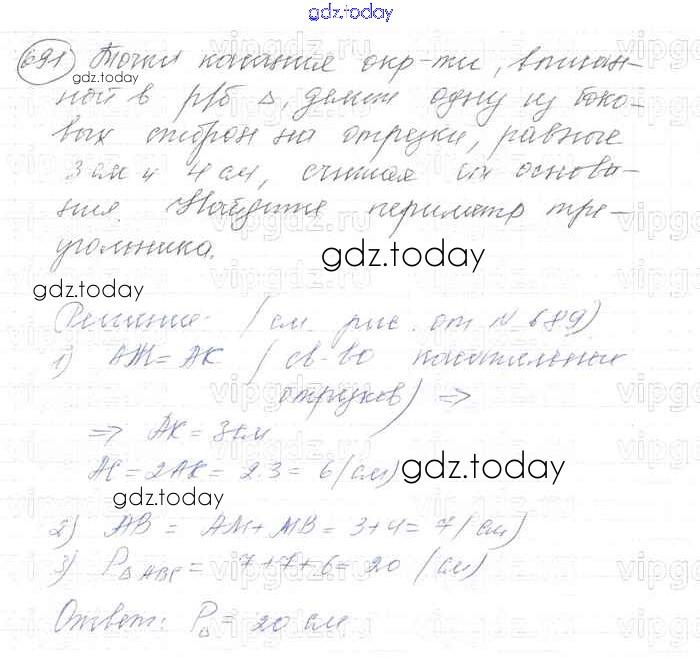 gdz.today
691 Точки касания окр-ти, вписан-
gdz.today
ной в р/б Δ, делит одну из боко-
вых сторон на отрезки, равные
3 см и 4 см, считая от основа-
ния. Найдите периметр тре-
угольника.
gdz.today
gdz.today
Решение: (см. рис. от № 689)
1) АМ = АК (св-во касательных
отрезков) =>
=> АК = 3 см
АС = 2АК = 2·3 = 6 (см)
gdz.today
gdz.today
2) АВ = АМ + МВ = 3+4 = 7 (см)
3) PΔABC = 7+7+6 = 20 (см)
Ответ: PΔ = 20 см